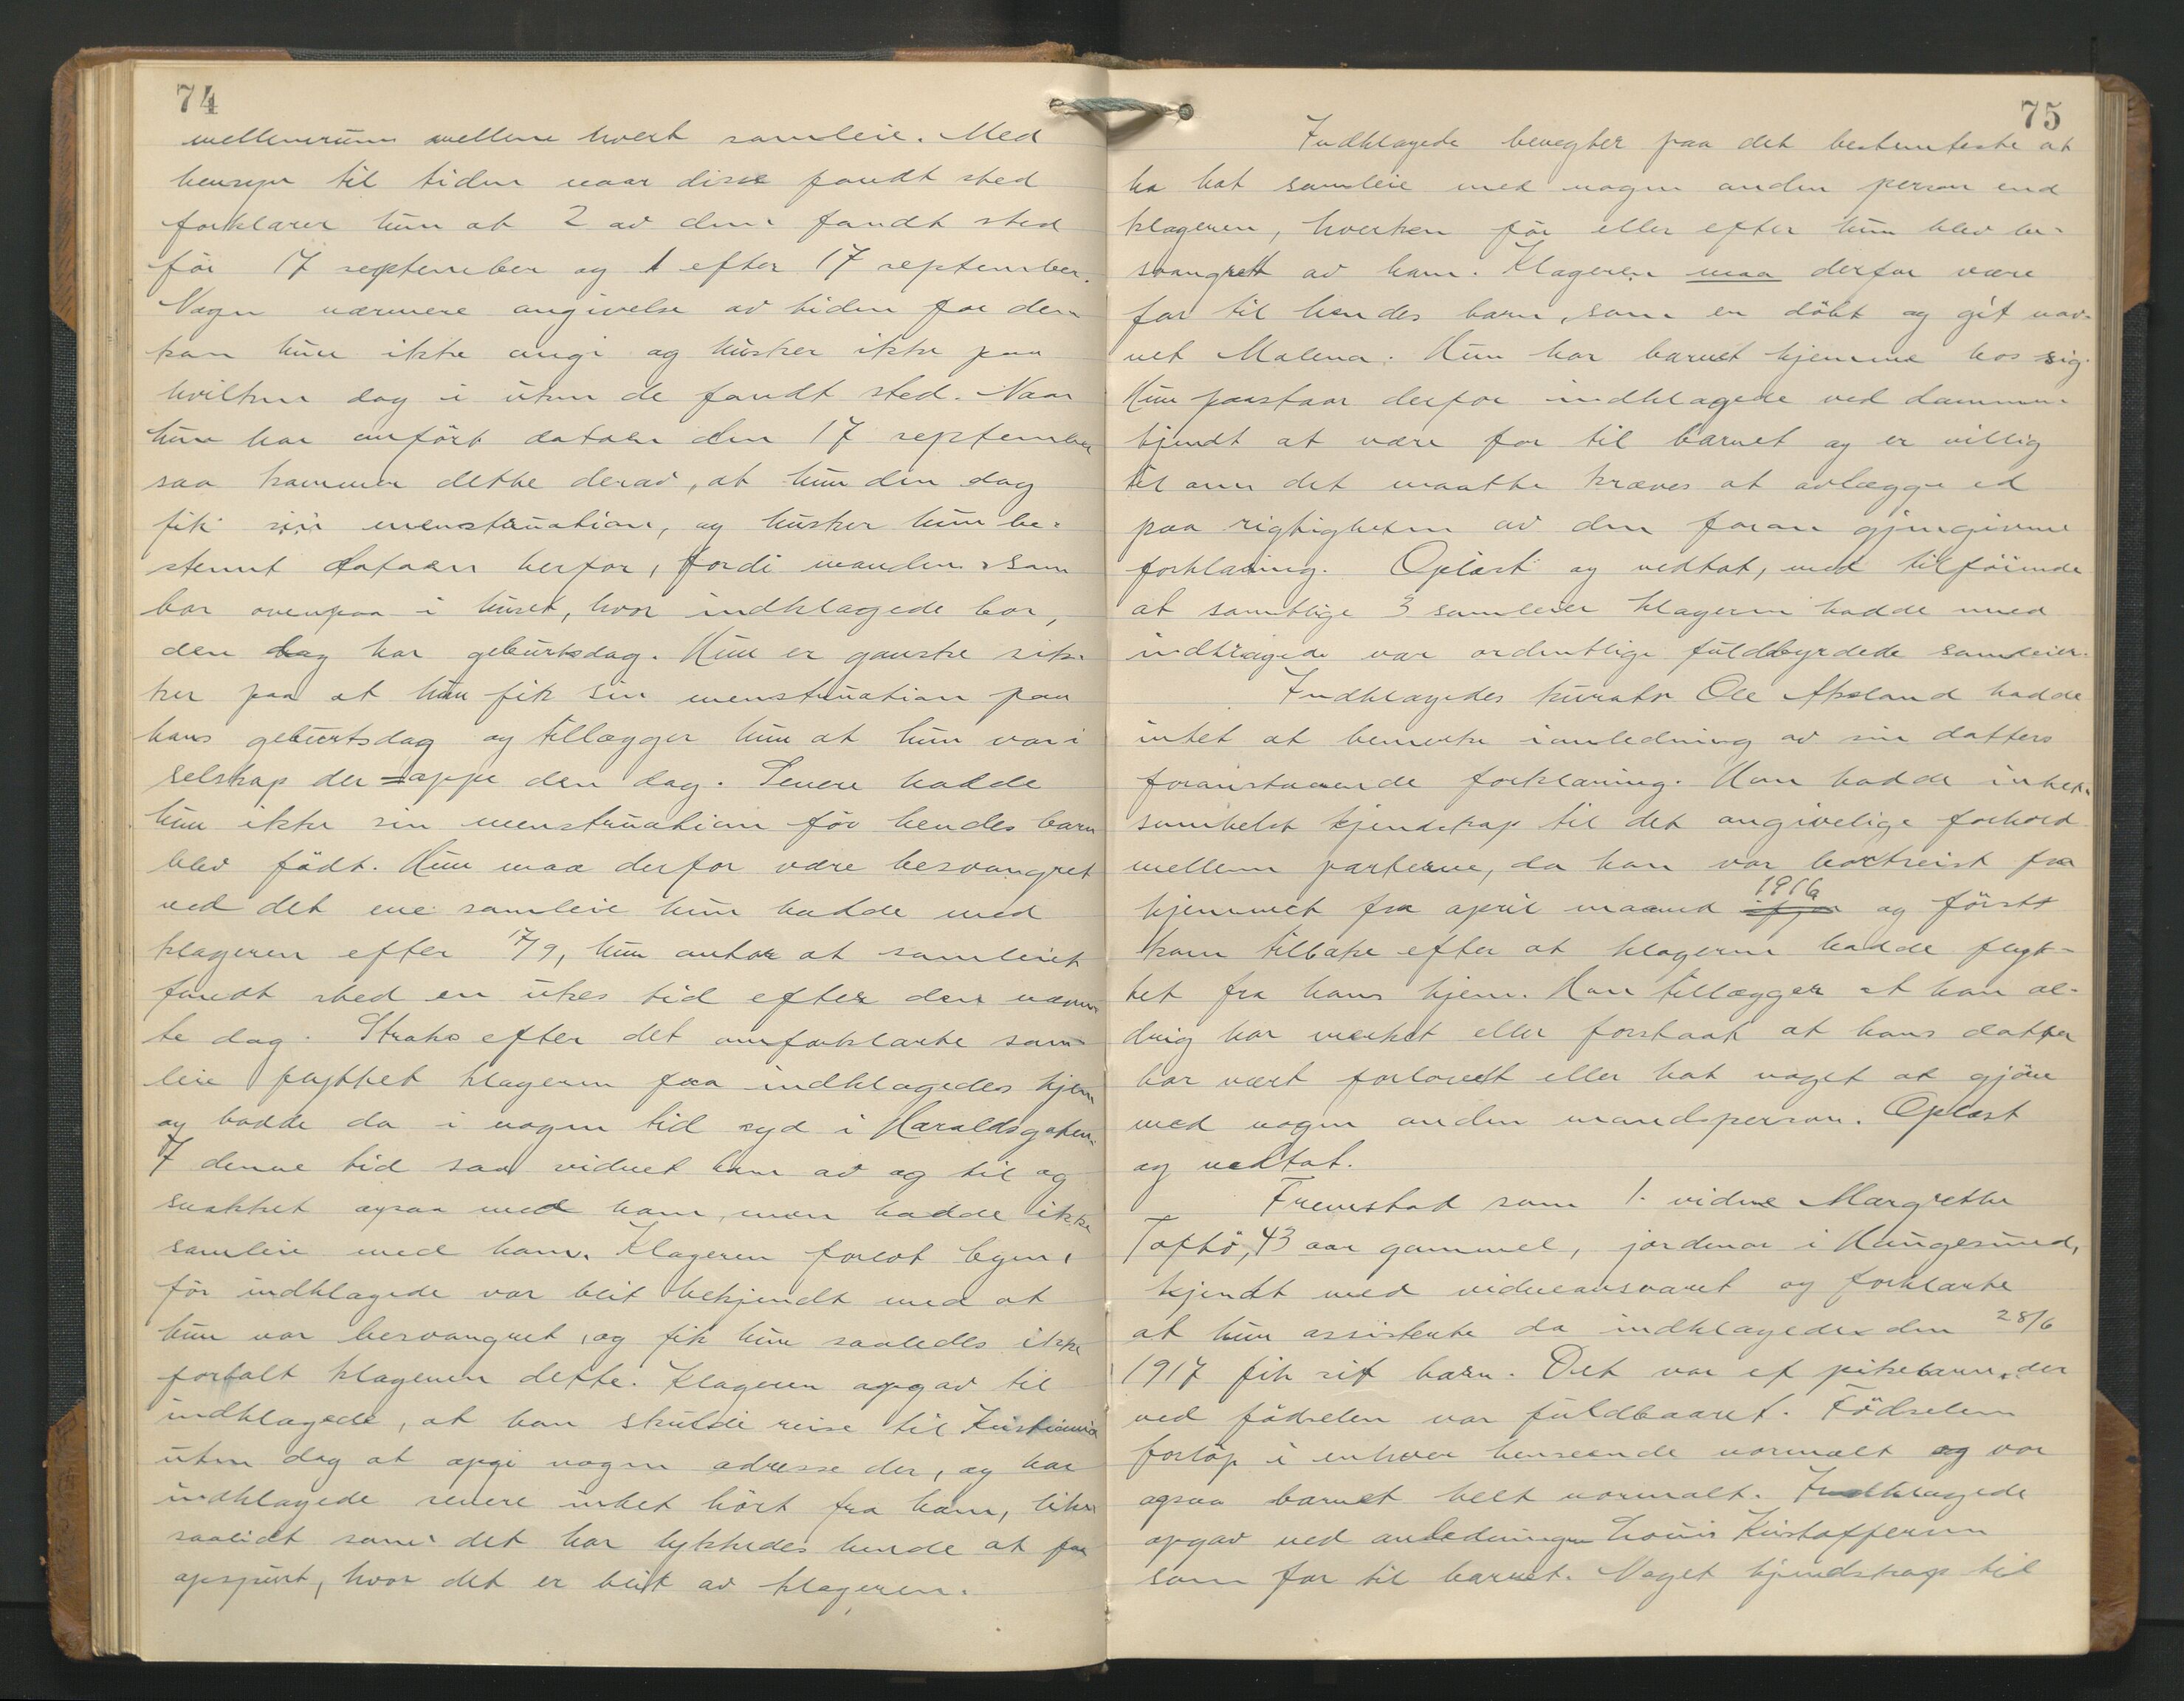 74
mellemrum mellem hvert samleie. Med
hensyn til tiden naar disse fandt sted
forklarer hun at 2 av dem fandt sted
för 17 september og 1 efter 17 september.
Nogen nærmere angivelse av tiden for dem
kan hun ikke angi og husker ikke paa
hvilken dag i uken de fandt sted. Naar
hun har anført datoen den 17 september
saa kommer dette derav, at hun den dag
fik sin menstruation, og husker hun be-
stemt datoen herfor, fordi manden som
bor ovenpaa i huset, hvor indklagede bor,
den dag har geburtsdag. Hun er ganske sik-
ker paa at hun fik sin menstruation paa
hans geburtsdag og tillægger hun at hun var i
selskap der oppe den dag. Senere hadde
hun ikke sin menstruation för hendes barn
blev födt. Hun maa derfor være besvangret
ved det ene samleie hun hadde med
klageren efter 17/9, hun antar at samleiet
fandt sted en ukes tid efter den nævn-
te dag. Straks efter det omforklarte sam-
leie flyttet klageren fra indklagedes hjem
og bodde da i nogen tid syd i Haraldsgaten.
I denne tid saa vidnet ham av og til og
snakket ogsaa med ham, men hadde ikke
samleie med ham. Klageren forlot byen,
för indklagede var blit bekjendt med at
hun var besvangret, og fik hun saaledes ikke
fortalt klageren dette. Klageren opgav til
indklagede, at han skulde reise til Kristiania
uten dog at opgi nogen adresse der, og har
indklagede senere intet hört fra ham, like
saalidt som det har lykkedes hende at faa
opspurt, hvor det er blit av klageren.
75
Indklagede benegter paa det bestemteste at
ha hat samleie med nogen anden person end
klageren, hverken för eller efter hun blev be-
svangret av ham. Klageren maa derfor være
far til hendes barn, som er döbt og git nav-
net Malena. Hun har barnet hjemme hos sig.
Hun paastaar derfor indklagede ved dommen
kjendt at være far til barnet og er villig
til om det maatte kræves at avlægge ed
paa rigtigheten av den foran gjengivne
forklaring. Oplæst og vedtat, med tilföiende
at samtlige 3 samleier klageren hadde med
indklagede var ordentlige fuldbyrdede samleier.
Indklagedes kurator Ole Aksland hadde
intet at bemerke i anledning av sin datters
foranstaaende forklaring. Han hadde intet-
somhelst kjendskap til det angivelige forhold
mellem parterne, da han var bortreist fra
hjemmet fra april maaned ifjor 1916 og först
kom tilbake efter at klageren hadde flyt-
tet fra hans hjem. Han tillægger at han al-
drig har merket eller forstaat at hans datter
har vært forlovet eller hat noget at gjöre
med nogen anden mandsperson. Oplæst
og vedtat.
Fremstod som 1. vidne Margrethe
Toftö, 43 aar gammel, jordmor i Haugesund,
kjendt med vidneansvaret og forklarte
at hun assisterte da indklagede den 28/6
1917 fik sit barn. Det var et pikebarn, der
ved födselen var fuldbaaret. Födselen
forlöp i enhver henseende normalt og var
ogsaa barnet helt normalt. Indklagede
opgav ved anledningen Louis Kristoffersen
som far til barnet. Noget kjendskap til